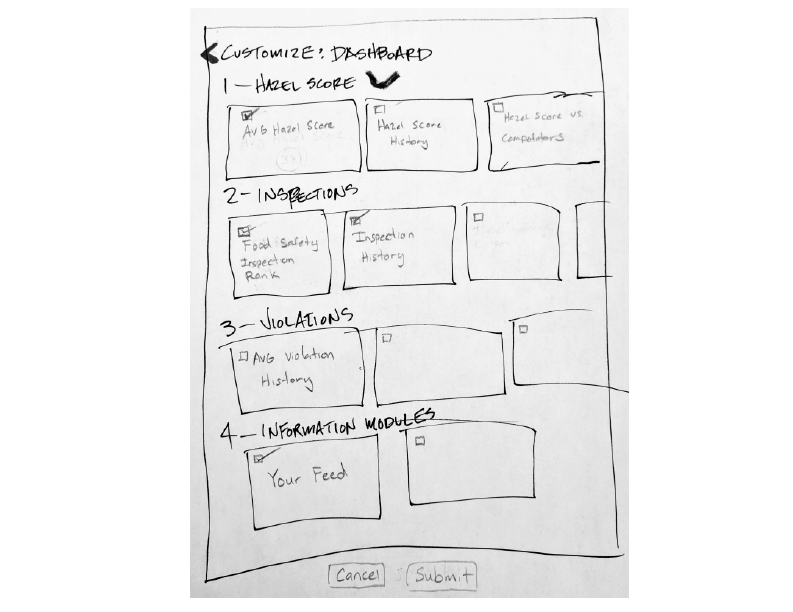 CUSTOMIZE: DASHBOARD
1 - HAZEL SCORE
AVG Hazel Score
Hazel Score
History
Hazel Score vs.
Competators
2 - INSPECTIONS
Food Safety
Inspection
Rank
Inspection
History
3 - VIOLATIONS
AVG Violation
History
4 - INFORMATION MODULES
Your Feed
Cancel
Submit